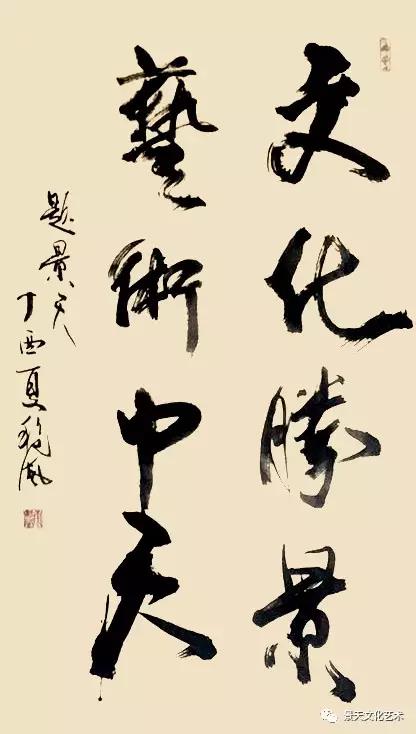 文化勝景
藝術中天
题景天
丁酉夏
景天文化艺术